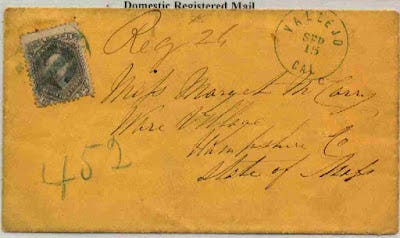 Domestic Registered Mail
Reg # 26
VALLEJO
SEP
15
CAL.
Miss Margret McCarry
Ware Village
Hampshire Co
State of Mass
452